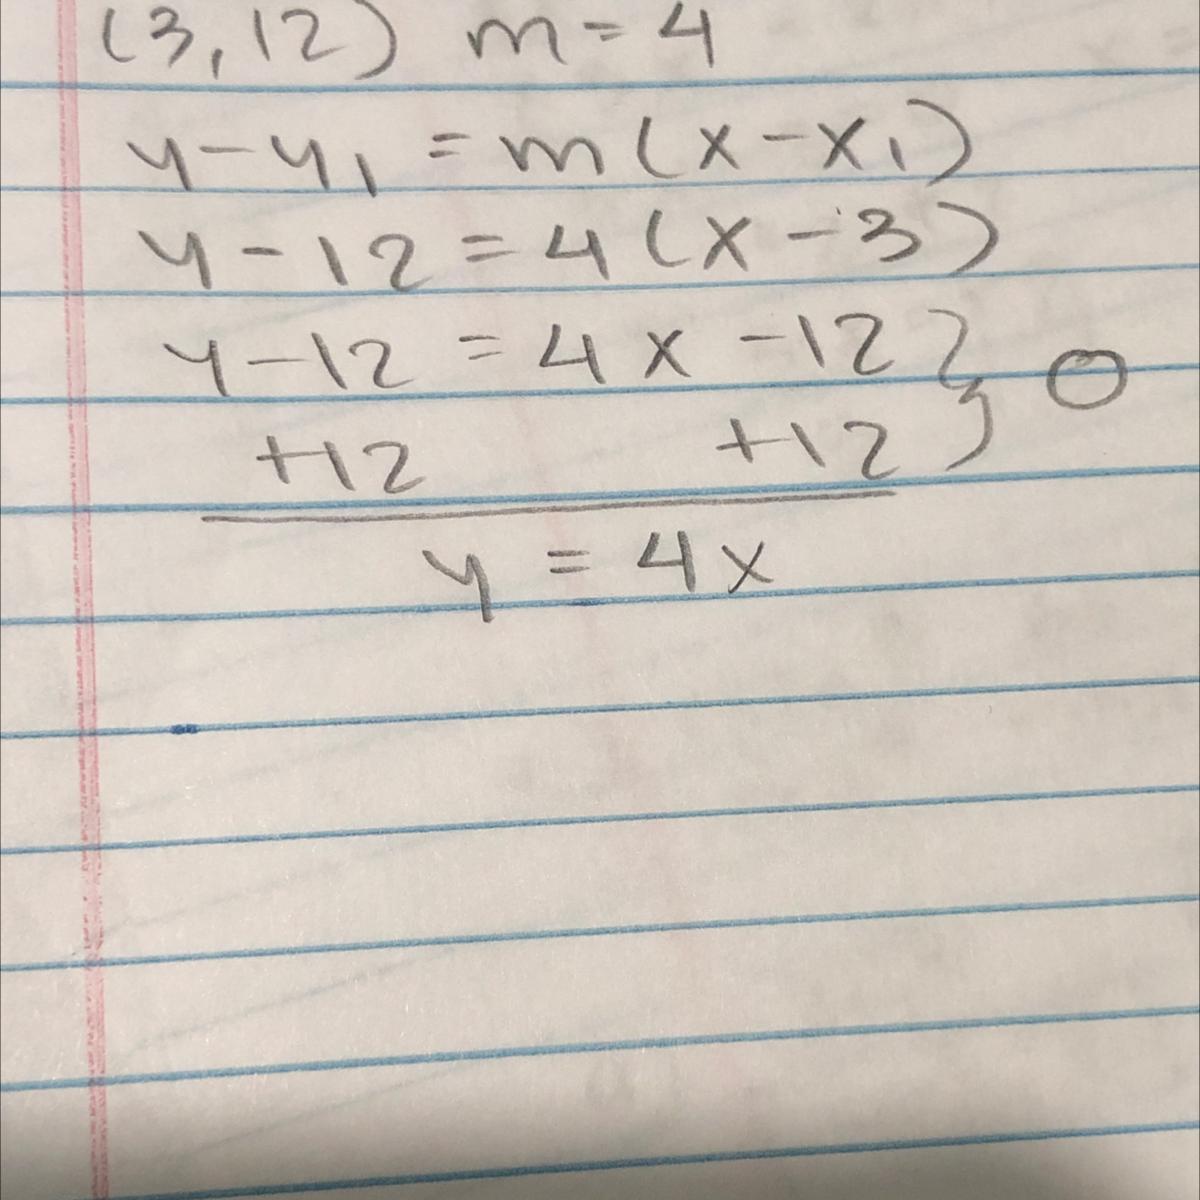 (3,12) m=4
y-y₁ = m(x-x₁)
y-12=4(x-3)
y-12 = 4x -12 } 0
+12 +12
y = 4x